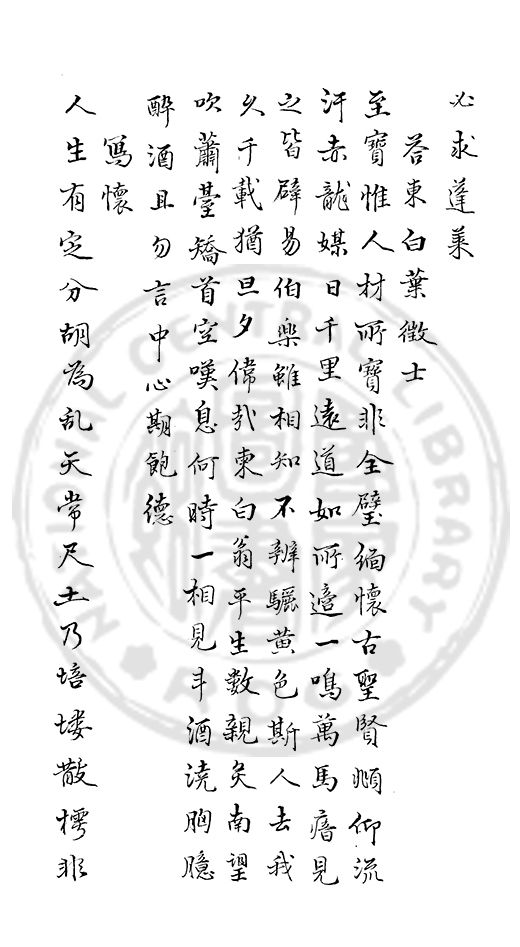 必求蓬萊
答東白葉徵士
至寶惟人材所寶非全璧緬懷古聖賢頫仰流
汗赤龍媒日千里遠道如所適一鳴萬馬瘖見
之皆辟易伯樂雖相知不辨驪黃色斯人去我
久千載猶旦夕偉哉東白翁平生數親炙南望
吹蕭臺矯首空嘆息何時一相見斗酒澆胸臆
醉酒且勿言中心期飽德
寫懷
人生有定分胡為乱天常尺土乃培塿散樗非
NATIONAL CENTRAL LIBRARY